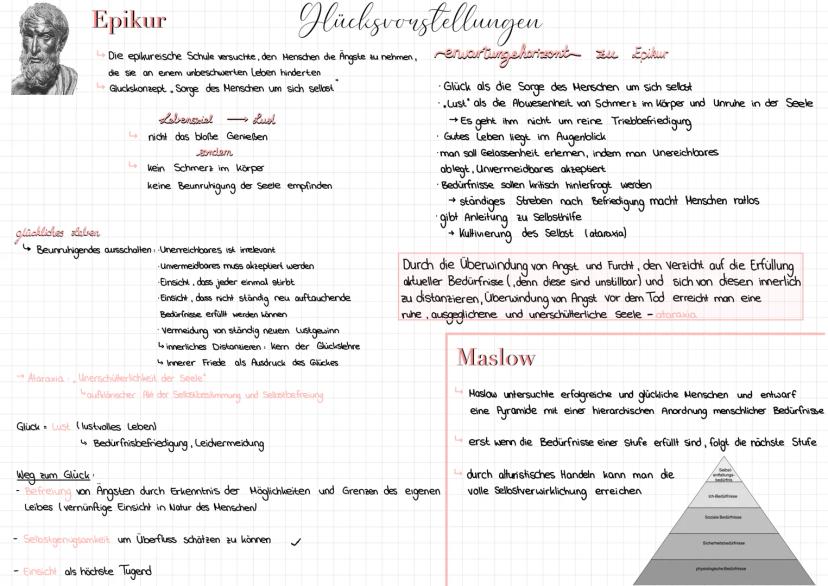 Glücksvorstellungen
Epikur
Die epikureische Schule versuchte, den Menschen die Ängste zu nehmen,
die sie an einem unbeschwerten Leben hinderten
Glückskonzept „Sorge des Menschen um sich selbst"
Lebensziel → Lust
nicht das bloße Genießen
sondern
kein Schmerz im Körper
keine Beunruhigung der Seele empfinden
glückliches Leben
Beunruhigendes ausschalten: · Unerreichbares ist irrelevant
· Unvermeidbares muss akzeptiert werden
· Einsicht, dass jeder einmal stirbt
· Einsicht, dass nicht ständig neu auftauchende
Bedürfnisse erfüllt werden können
· Vermeidung von ständig neuem Lustgewinn
innerliches Distanzieren: Kern der Glückslehre
Innerer Friede als Ausdruck des Glückes
→ Ataraxia: „Unerschütterlichkeit der Seele"
aufklärischer Akt der Selbstbestimmung und Selbstbefreiung
Glück = Lust (lustvolles Leben)
Bedürfnisbefriedigung, Leidvermeidung
Weg zum Glück:
- Befreiung von Ängsten durch Erkenntnis der Möglichkeiten und Grenzen des eigenen
Leibes (vernünftige Einsicht in Natur des Menschen)
- Selbstgenügsamkeit um Überfluss schätzen zu können ✓
- Einsicht als höchste Tugend
erwartungshorizont zu Epikur
· Glück als die Sorge des Menschen um sich selbst
· „Lust" als die Abwesenheit von Schmerz im Körper und Unruhe in der Seele
→ Es geht ihm nicht um reine Triebbefriedigung
· Gutes Leben liegt im Augenblick
· man soll Gelassenheit erlernen, indem man Unereichbares
ablegt, Unvermeidbares akzeptiert
· Bedürfnisse sollen kritisch hinterfragt werden
→ ständiges Streben nach Befriedigung macht Menschen ratlos
· gibt Anleitung zu Selbsthilfe
→ Kultivierung des Selbst (ataraxia)
Durch die Überwindung von Angst und Furcht, den Verzicht auf die Erfüllung
aktueller Bedürfnisse (,denn diese sind unstillbar) und sich von diesen innerlich
zu distanzieren, Überwindung von Angst vor dem Tod erreicht man eine
ruhe, ausgeglichene und unerschütterliche Seele - ataraxia
Maslow
Maslow untersuchte erfolgreiche und glückliche Menschen und entwarf
eine Pyramide mit einer hierarchischen Anordnung menschlicher Bedürfnisse
erst wenn die Bedürfnisse einer Stufe erfüllt sind, folgt die nächste Stufe
durch altruistisches Handeln kann man die
volle Selbstverwirklichung erreichen
Selbst-
entfaltungs-
bedürfnis
Ich-Bedürfnisse
Soziale Bedürfnisse
Sicherheitsbedürfnisse
physiologische Bedürfnisse